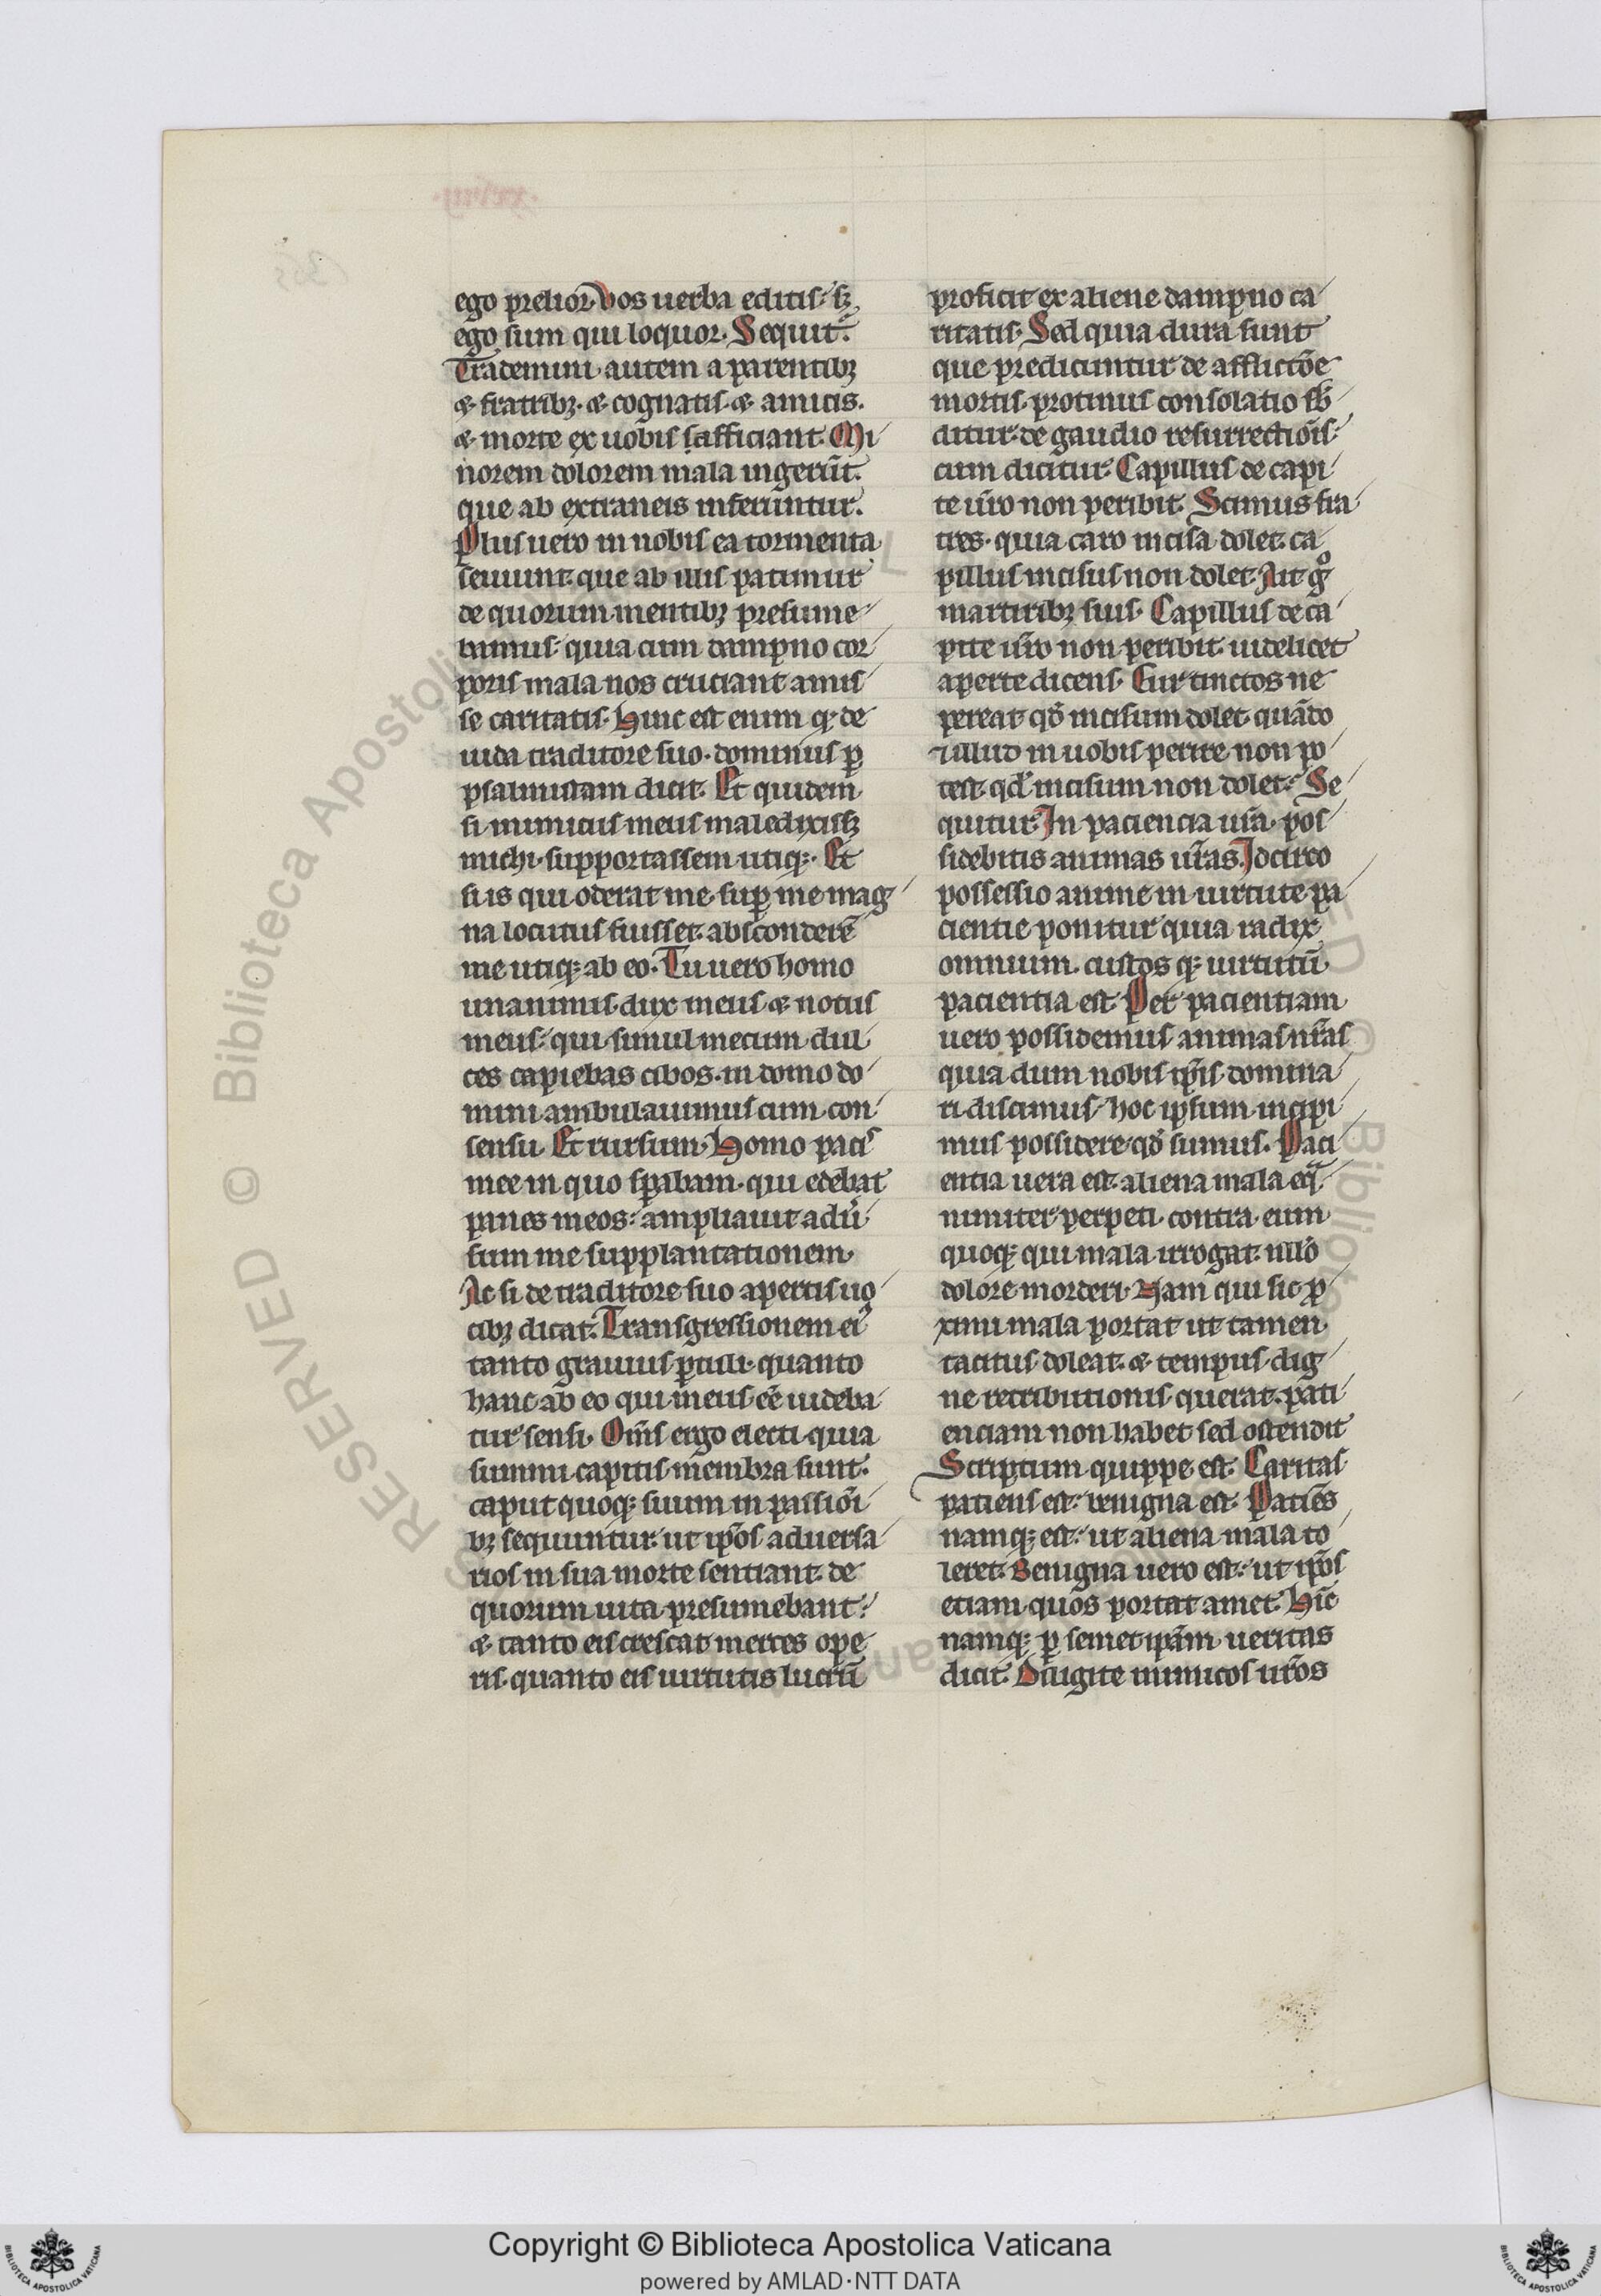 ego prelior. Vos uerba editis: sꝫ
ego sum qui loquor. Sequit᷑.
Trademini autem a parentibꝫ
⁊ fratribꝫ. ⁊ cognatis. ⁊ amicis.
⁊ morte ex uobis afficiant. Mi
norem dolorem mala ingerūt.
que ab extraneis inferuntur.
Plus uero in nobis ea tormenta
seuiunt. que ab illis patimur
de quorum mentibꝫ presume
bamus: quia cum dampno cor
poris mala nos cruciant amis
se caritatis. Hinc est enim qͥ de
iuda traditore suo. dominus ꝑ
psalmistam dicit. Et quidem
si inimicus meus maledixissꝫ
michi. supportassem utiqꝫ. Et
si is qui oderat me. suꝑ me mag
na locutus fuisset. absconderē
me utiqꝫ ab eo. Tu uero homo
unanimis. dux meus ⁊ notus
meus: qui simul mecum dul
ces capiebas cibos. in domo do
mini ambulauimus cum con
sensu. Et rursum. Homo pacis
mee in quo sꝑabam. qui edebat
panes meos: ampliauit adu᷑
sum me supplantationem.
Ac si de traditore suo apertis uo
cibꝫ dicat. Transgressionem ei᷒
tanto grauius ꝑtuli. quanto
hanc ab eo qui meus eē uideba
tur sensi. Om̄s ergo electi quia
summi capitis membra sunt.
caput quoqꝫ suum in passiōi
bꝫ sequuntur: ut ip̄os aduersa
rios in sua morte sentiant. de
quorum uita presumebant:
⁊ tanto eis crescat merces ope
ris. quanto eis uirtutis lucrū
proficit ex aliene dampno ca
ritatis. Sed quia dura sunt
que predicuntur de afflictōe
mortis. protinus consolatio sƀ
ditur. de gaudio resurrectiōis:
cum dicitur. Capillus de capi
te ur̄o non peribit. Scimus fra
tres. quia caro incisa dolet. ca
pillus incisus non dolet. Ait gͦ
martiribꝫ suis. Capillus de ca
pite ur̄o non peribit. uidelicet
aperte dicens. Cur timetis ne
pereat qd̄ incisum dolet. quādo
⁊ illud in uobis perire non po
test. qd̄ incisum non dolet: Se
quitur. In paciencia ur̄a. pos
sidebitis animas ur̄as. Idcirco
possessio anime in uirtute pa
cientie ponitur. quia radix
omnium. custos qꝫ uirtutū
pacientia est. Per pacientiam
uero possidemus animas nr̄as
quia dum nobis ip̄is domina
ri discimus. hoc ipsum incipi
mus possidere. qd̄ sumus. Paci
entia uera est. aliena mala eqͣ
nimiter perpeti. contra eum
quoqꝫ qui mala irrogat. nullo
dolore morderi. Nam qui sic ꝓ
ximi mala portat ut tamen
tacitus doleat. ⁊ tempus dig
ne retributionis querat. pati
enciam non habet sed ostendit
Scriptum quippe est. Caritas
patiens est: benigna est. Patiēs
namqꝫ est: ut aliena mala to
leret. Benigna uero est: ut ip̄os
etiam quos portat amet. Hīc
namqꝫ ꝑ semetip̄am ueritas
dicit. Diligite inimicos ur̄os
Copyright © Biblioteca Apostolica Vaticana
powered by AMLAD·NTT DATA